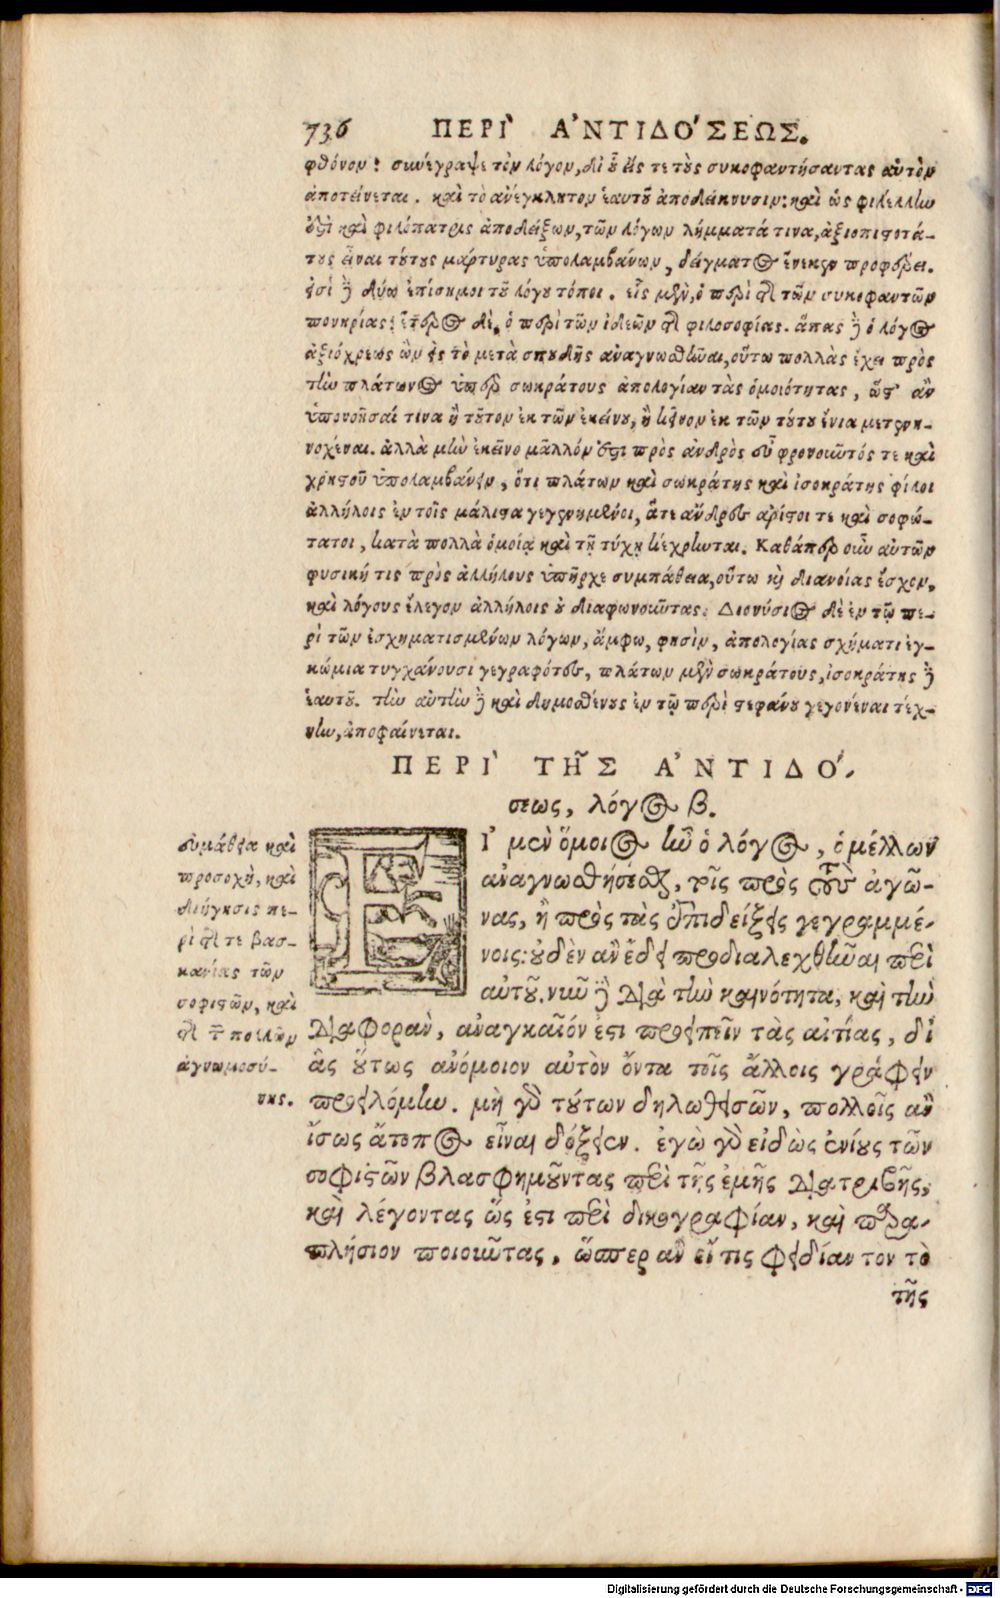 736 ΠΕΡΙ` Α᾿ΝΤΙΔΟ´ΣΕΩΣ.
φθόνου: συνέγραψε τὸν λόγον, δι' οὗ εἴς τε τοὺς συκοφαντήσαντας αὐτὸν
ἀποτείνεται. καὶ τὸ ἀνέγκλητον ἑαυτοῦ ἀποδείκνυσιν: καὶ ὡς φιλέλλην
ἐστὶ καὶ φιλόπατρις ἀποδείξων, τῶν λόγων λήμματά τινα, ἀξιοπιστοτά-
τους εἶναι τούτους μάρτυρας ὑπολαμβάνων, δείγματος ἕνεκεν προφέρει.
εἰσὶ δὲ δύω ἐπίσημοι τοῦ λόγου τόποι. εἷς μὲν, ὁ περὶ τῆς τῶν συκοφαντῶν
πονηρίας: ἕτερος δὲ, ὁ περὶ τῶν ἰδεῶν τῆς φιλοσοφίας. ἅπας δὲ ὁ λόγος
ἀξιόχρεως ὢν εἰς τὸ μετὰ σπουδῆς ἀναγνωσθῆναι, οὕτω πολλὰς ἔχει πρὸς
τὴν πλάτωνος ὑπὲρ σωκράτους ἀπολογίαν τὰς ὁμοιότητας, ὥστ' ἂν
ὑπονοῆσαί τινα ἢ τοῦτον ἐκ τῶν ἐκείνου, ἢ κεῖνον ἐκ τῶν τούτου ἔνια μετενη-
νοχέναι. ἀλλὰ μὴν ἐκεῖνο μᾶλλόν ἐστι πρὸς ἀνδρὸς εὖ φρονοῦντός τε καὶ
χρηστοῦ ὑπολαμβάνειν, ὅτι πλάτων καὶ σωκράτης καὶ ἰσοκράτης φίλοι
ἀλλήλοις ἐν τοῖς μάλιστα γεγενημένοι, ἅτε ἄνδρες ἄριστοι τε καὶ σοφώ-
τατοι, κατὰ πολλὰ ὁμοίᾳ καὶ τῇ τύχῃ κέχρηνται. Καθάπερ οὖν αὐτῶν
φυσική τις πρὸς ἀλλήλους ὑπῆρχε συμπάθεια, οὕτω καὶ διανοίας ἔσχον,
καὶ λόγους ἔλεγον ἀλλήλοις οὐ διαφωνοῦντας. Διονύσιος δὲ ἐν τῷ πε-
ρὶ τῶν ἐσχηματισμένων λόγων, ἄμφω, φησὶν, ἀπολογίας σχήματι ἐγ-
κώμια τυγχάνουσι γεγραφότες, πλάτων μὲν σωκράτους, ἰσοκράτης δὲ
ἑαυτοῦ. τὴν αὐτὴν δὲ καὶ δημοσθένους ἐν τῷ περὶ στεφάνου γεγονέναι τέχ-
νην, ἀποφαίνεται.
ΠΕΡΙ` ΤΗ͂Σ Α᾿ΝΤΙΔΟ´-
σεως, λόγος β.
ΕΙ᾿ μὲν ὅμοιος ἦν ὁ λόγος, ὁ μέλλων
ἀναγνωσθήσεσθαι, τοῖς πρὸς τοὺς ἀγῶ-
νας, ἢ πρὸς τὰς ἐπιδείξεις γεγραμμέ-
νοις: οὐδὲν ἂν ἔδει προδιαλεχθῆναι περὶ
αὐτοῦ. νῦν δὲ διὰ τὴν καινότητα, καὶ τὴν
διαφορὰν, ἀναγκαῖόν ἐστι προειπεῖν τὰς αἰτίας, δι'
ἃς οὕτως ἀνόμοιον αὐτὸν ὄντα τοῖς ἄλλοις γράφειν
προειλόμην. μὴ γὰρ τούτων δηλωθεισῶν, πολλοῖς ἂν
ἴσως ἄτοπος εἶναι δόξειεν. ἐγὼ γὰρ εἰδὼς ἐνίους τῶν
σοφιστῶν βλασφημοῦντας περὶ τῆς ἐμῆς διατριβῆς,
καὶ λέγοντας ὥς ἐστι περὶ δικογραφίαν, καὶ παρα-
πλήσιον ποιοῦντας, ὥσπερ ἂν εἴ τις φειδίαν τον τὸ
τῆς
εὐμάθεια καὶ
προσοχὴ, καὶ
διήγησις πε-
ρὶ τῆς τε βασ-
κανίας τῶν
σοφιστῶν, καὶ
τῆς τῶν πολλῶν
ἀγνωμοσύ-
νης.
Digitalisierung gefördert durch die Deutsche Forschungsgemeinschaft - DFG